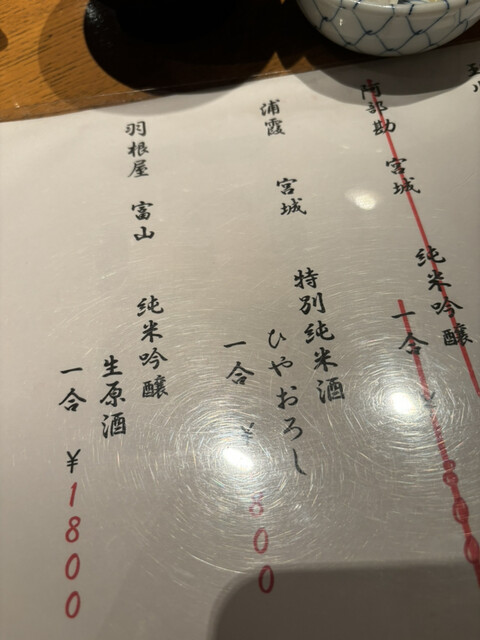 阿部勘 宮城
純米吟醸
一合 ¥
浦霞 宮城
特別純米酒
ひやおろし
一合 ¥
羽根屋 富山
純米吟醸
生原酒
一合 ¥1800